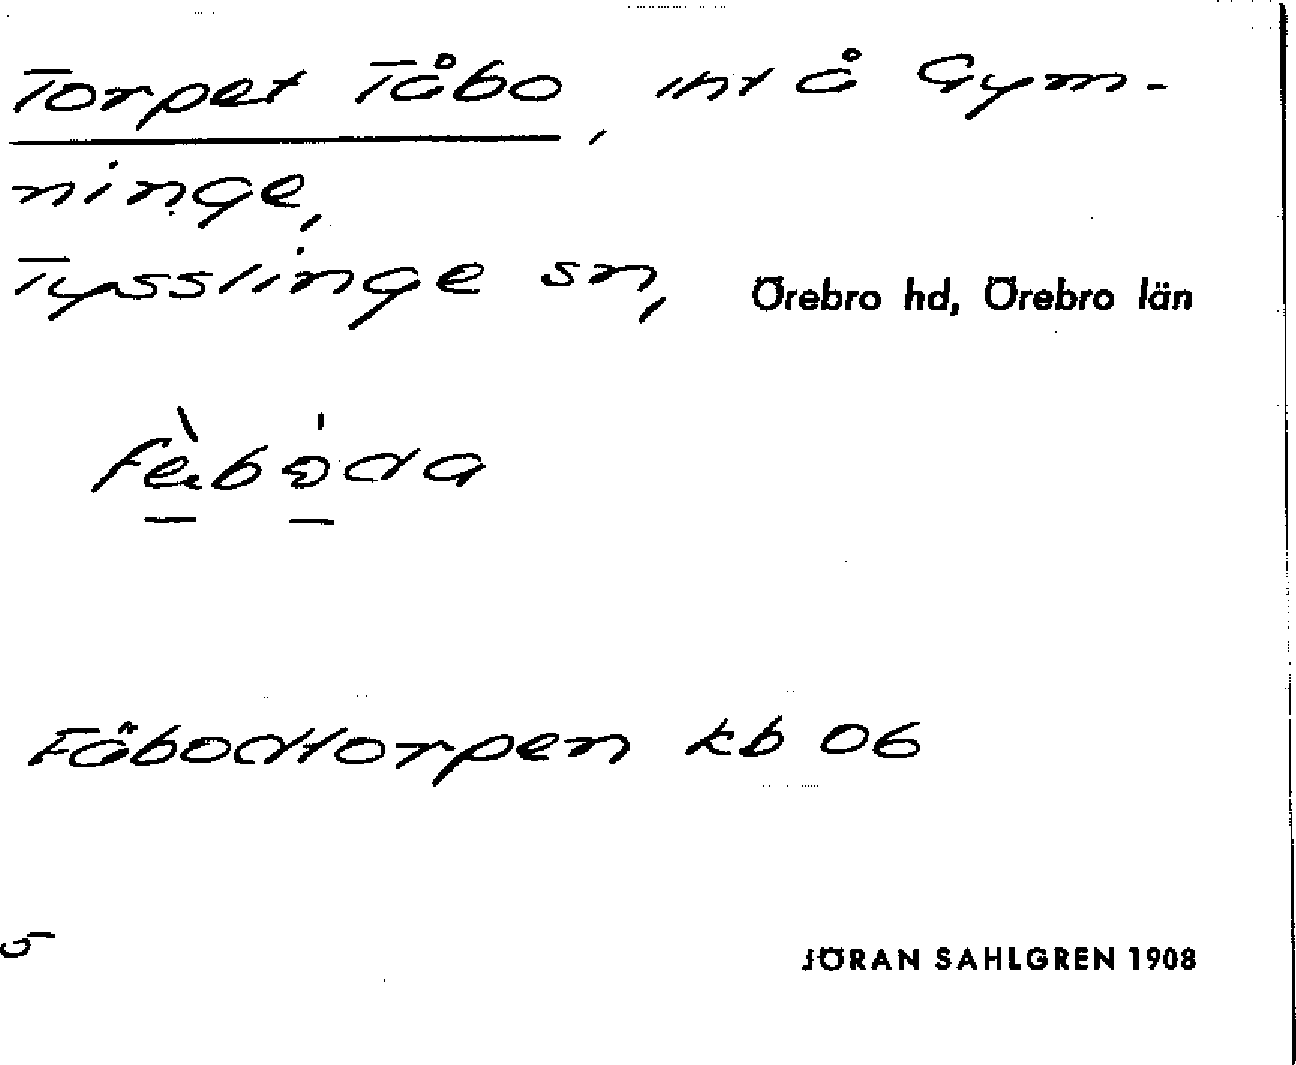 Torpet Tåbo, int å Gym-
ninge,
Tysslinge sn, Örebro hd, Örebro län
Fäbodtorpen kb 06
5
JÖRAN SAHLGREN 1908